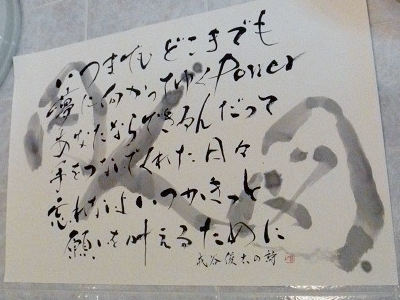 いつまでも どこまでも
夢に向かってゆくPower
あなたならできるんだって
手をつないでくれた日々
忘れないよ いつかきっと
願いを叶えるために
俊太の詩